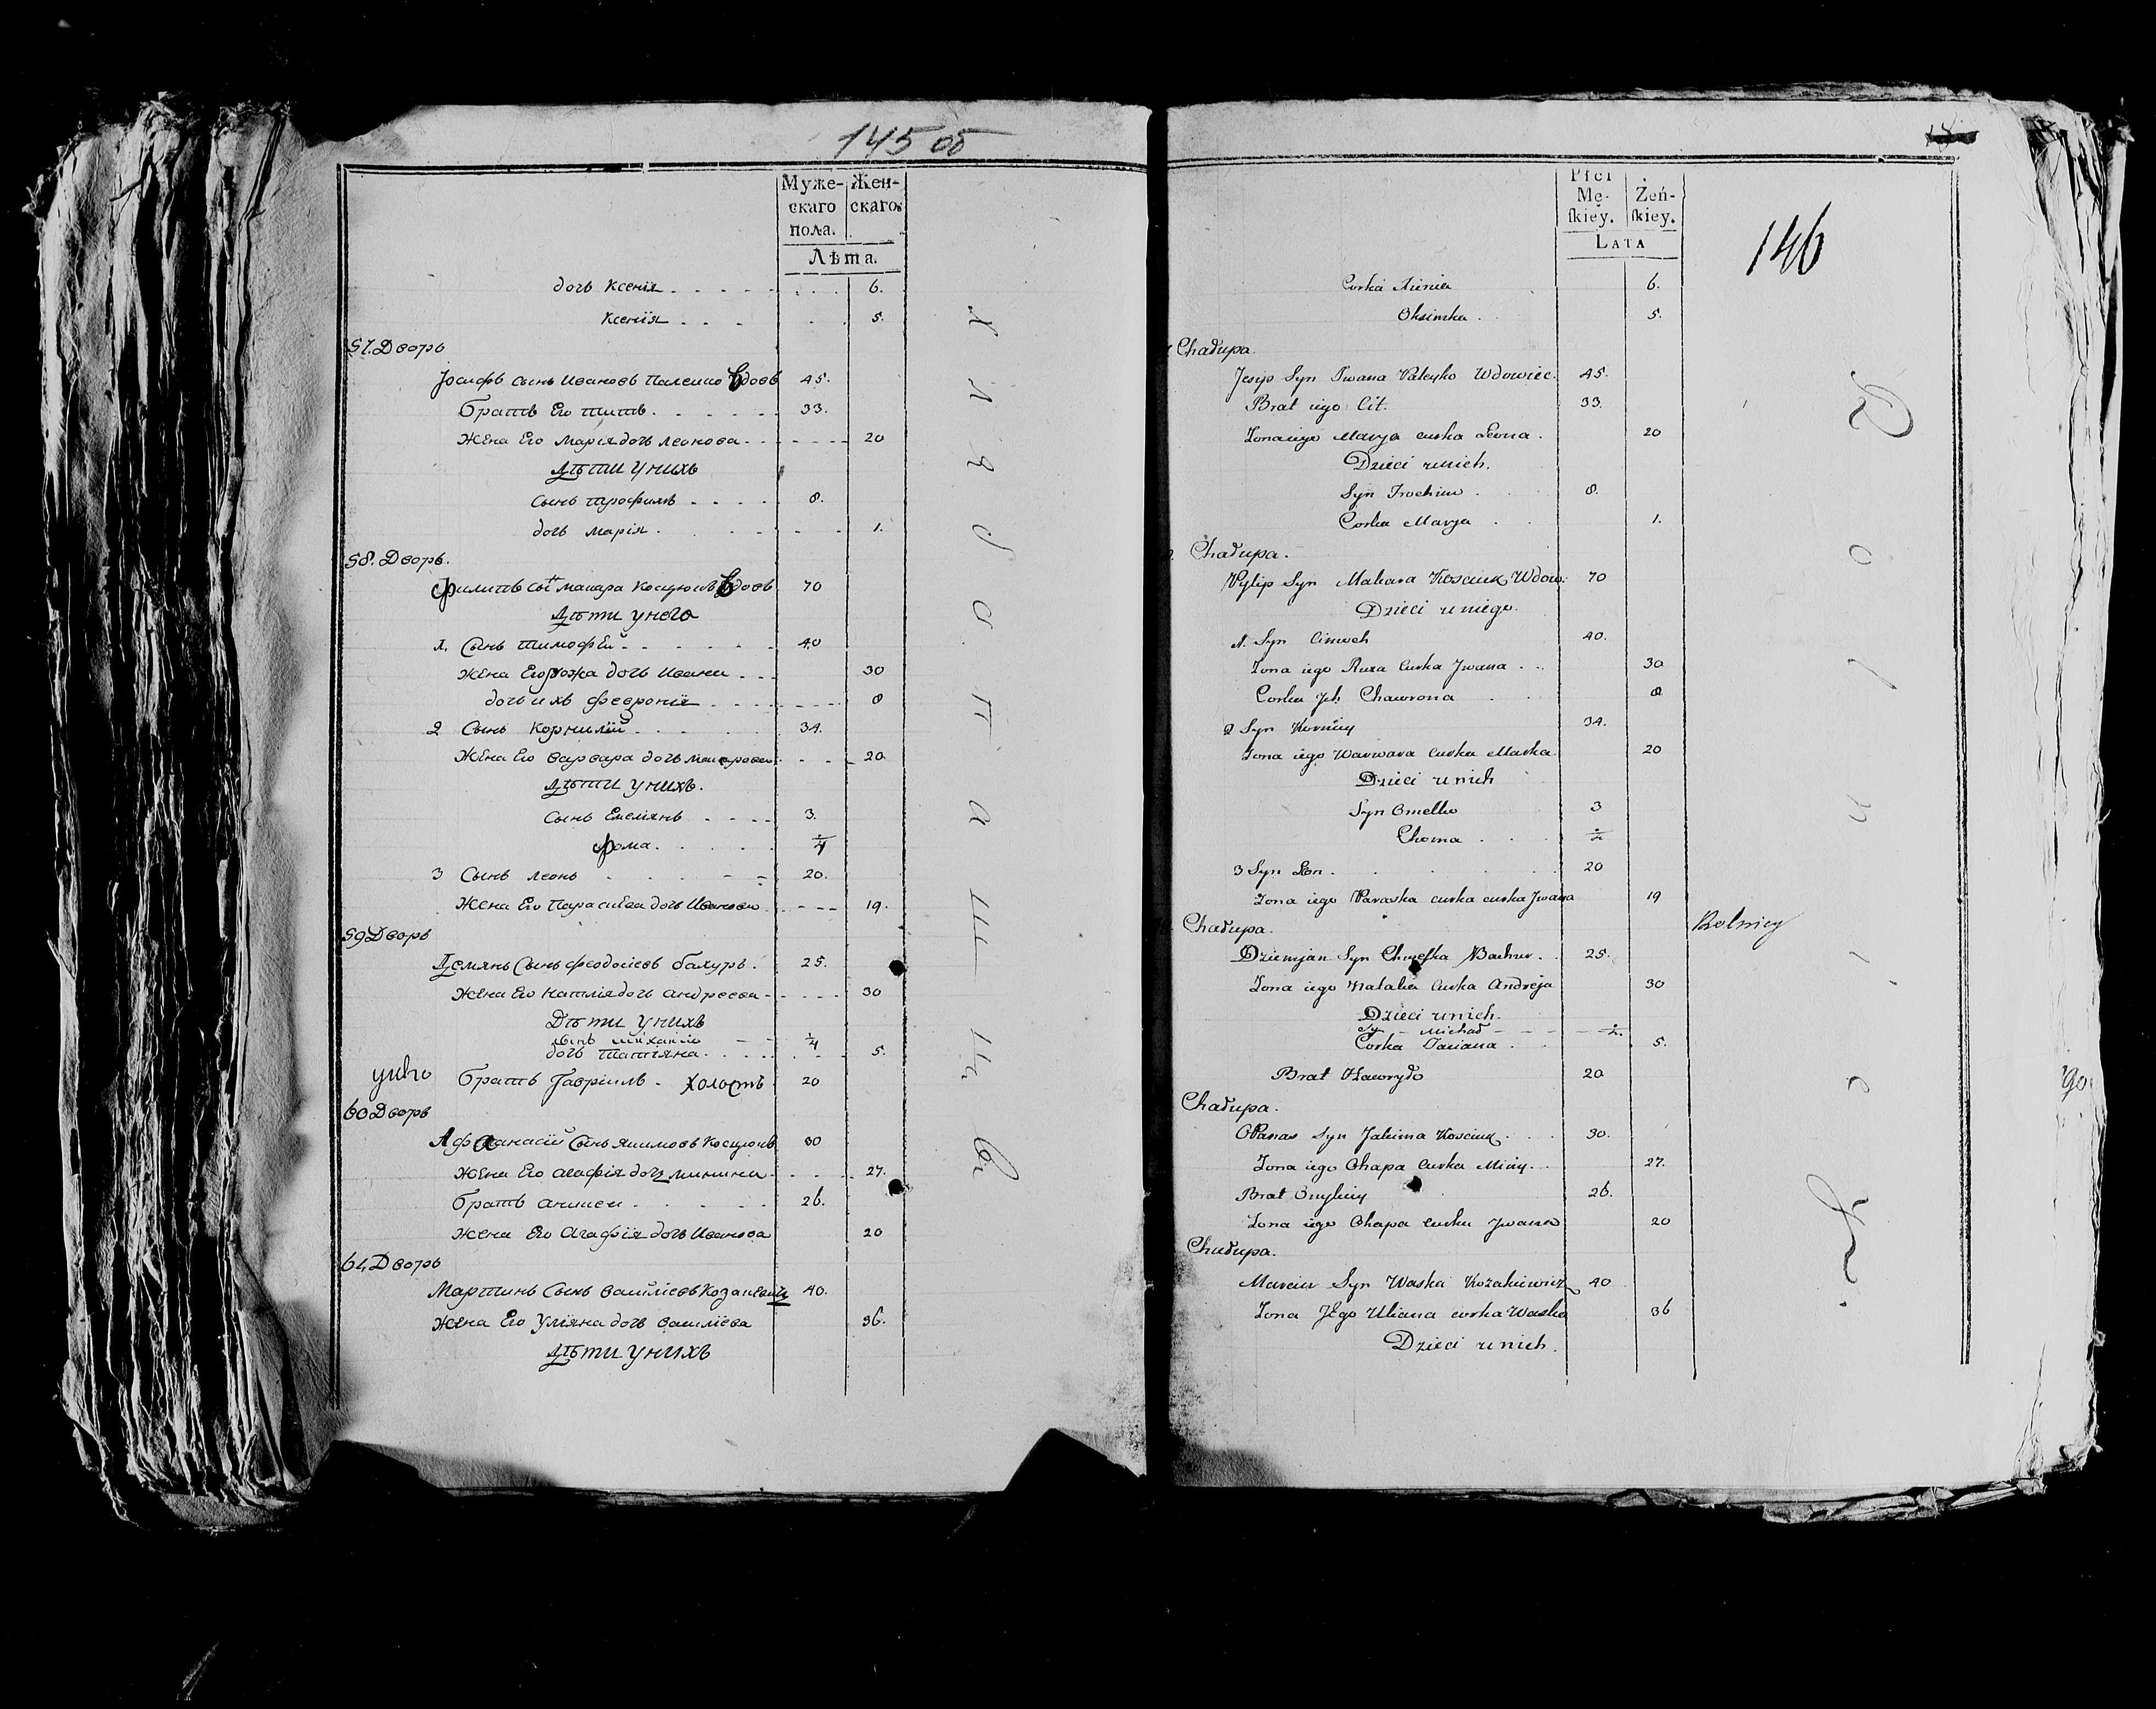 145 об
Муже- Жен-
скаго скаго.
пола.
Лѣта.
дочь Ксенія 6.
Ксенія 5.
57. Дворъ
Іосифъ сынъ Ивановъ Палейко Вдовъ 45.
Братъ Его Титъ 33.
Жена Его Марія дочь Леонова 20
Дѣти у нихъ
Сынъ Трофимъ 8.
дочь Марія 1.
58. Дворъ.
Филипъ сынъ Макара Косцюкъ Вдовъ 70
Дѣти у него
1. Сынъ Тимофей 40
Жена Его Рожа дочь Ивана 30
дочь ихъ Феврония 8
2 Сынъ Корнилій 34.
Жена Его Варвара дочь 20
Дѣти у нихъ.
Сынъ Емеліянъ 3.
Фома
3 Сынъ Леонъ 20.
Жена Его Параскева дочь Иванова 19.
59 Дворъ
Демянъ Сынъ Феодосіевъ Бахуръ. 25.
Жена Его Наталія дочь Андреева 30
Дѣти у нихъ
сынъ Михаилъ
дочь Татіяна 5.
у него Братъ Гавріилъ - холостъ 20
60 Дворъ
Афанасій Сынъ Якимовъ Косцюкъ 30
Жена Его Агафія дочь Минина 27.
Братъ 26.
Жена Его Агафія дочь Иванова 20
61, Дворъ
Мартинъ Сынъ Василіевъ Козакевичъ 40.
Жена Его Уліяна дочь Василіева 36.
Дѣти у нихъ
Хлѣбопашцы
Płci
Mę- Żeń-
ſkiey. ſkiey.
LATA
146
Corka Xienia 6.
Oksimka 5.
Chałupa
Jesip Syn Iwana Paleyko Wdowiec. 45.
Brat iego Cit. 33.
Zona iego Marya curka Leona. 20
Dzieci u nich.
Syn Trochim 8.
Corka Marya 1.
Chałupa.
Pylip Syn Makara Kosciuk Wdow: 70
Dzieci u niego.
1. Syn Cimoch 40.
Zona iego Ruza Curka Jwana 30
Corka Jch Chawrona 8
2 Syn Korniey 34.
Zona iego Warwara Curka Marka 20
Dzieci u nich
Syn Omelko 3
Choma
3 Syn Leon. 20
Zona iego Paraska curka curka Jwana 19
Chałupa. Rolnicy
Dziemjan Syn Bachur. 25.
Zona iego Natalia Curka Andreja 30
Dzieci u nich.
Sy - Michał
Corka Taciana 5.
Brat Hawryło 20
Chałupa.
Opanas Syn Jakima Kosciuk 30.
Zona iego Ohapa Curka Miny 27.
Brat 26.
Zona iego Ohapa Curka Jwana 20
Chałupa.
Marcin Syn Waska Kozakiewicz 40
Zona Jego Uliana curka Waska 36
Dzieci u nich.